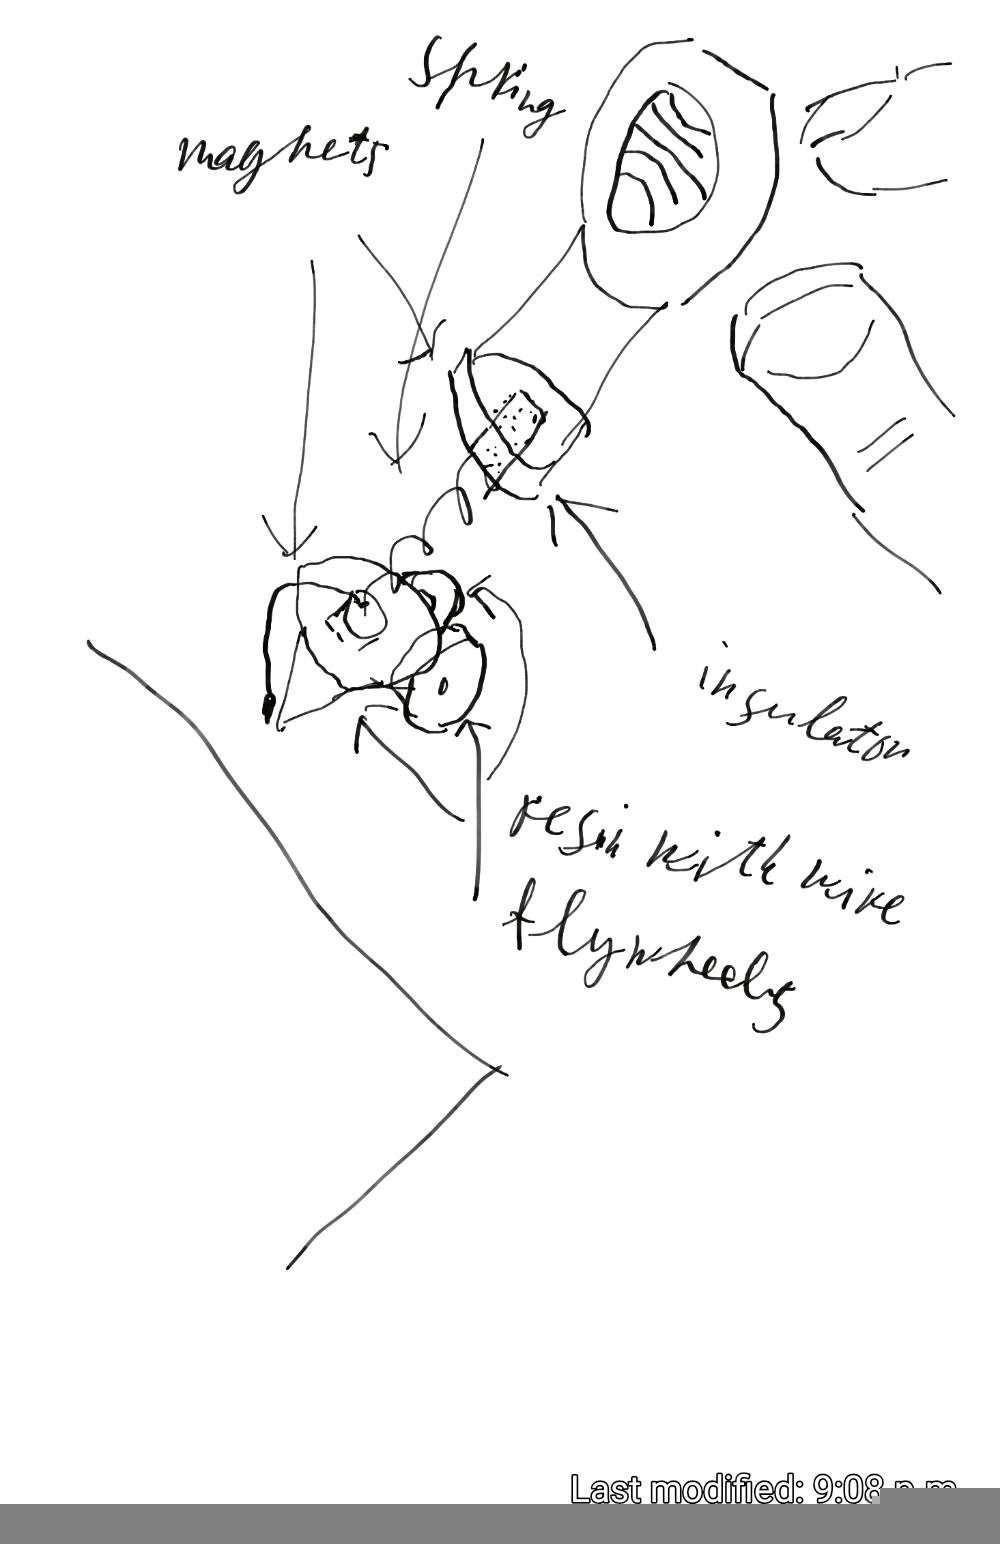 Spring
magnets
insulator
resin with wire
flywheels
Last modified: 9:08 p.m.